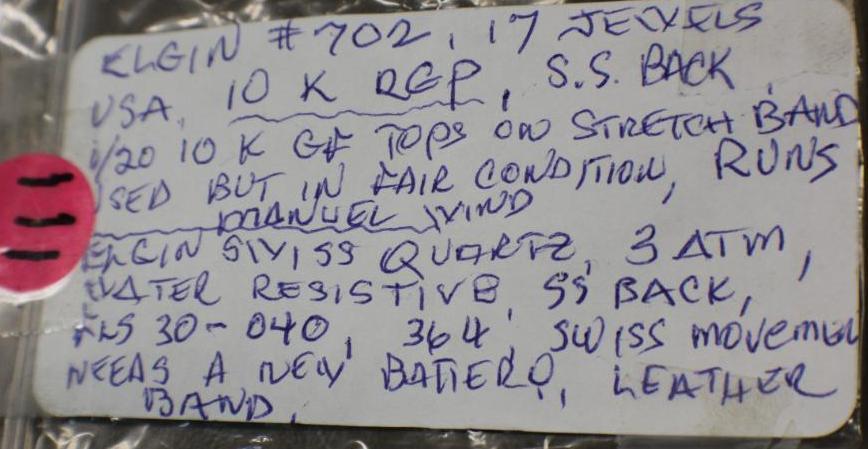 ELGIN #702, 17 JEWELS
USA, 10 K RGP, S.S. BACK
1/20 10 K GF TOPS ON STRETCH BAND
USED BUT IN FAIR CONDITION, RUNS
MANUEL WIND
ELGIN SWISS QUARTZ, 3 ATM,
WATER RESISTIVE, SS BACK,
30-040, 364, SWISS MOVEMEN
NEEDS A NEW BATTERY, LEATHER
BAND,